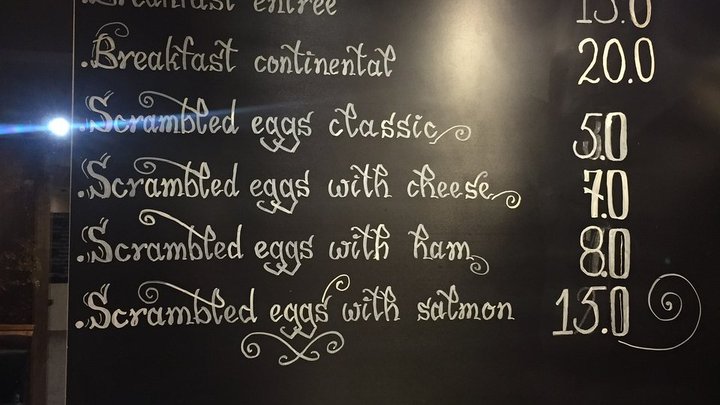 Breakfast entree 15.0
.Breakfast continental 20.0
.Scrambled eggs classic 5.0
.Scrambled eggs with cheese 7.0
.Scrambled eggs with ham 8.0
.Scrambled eggs with salmon 15.0